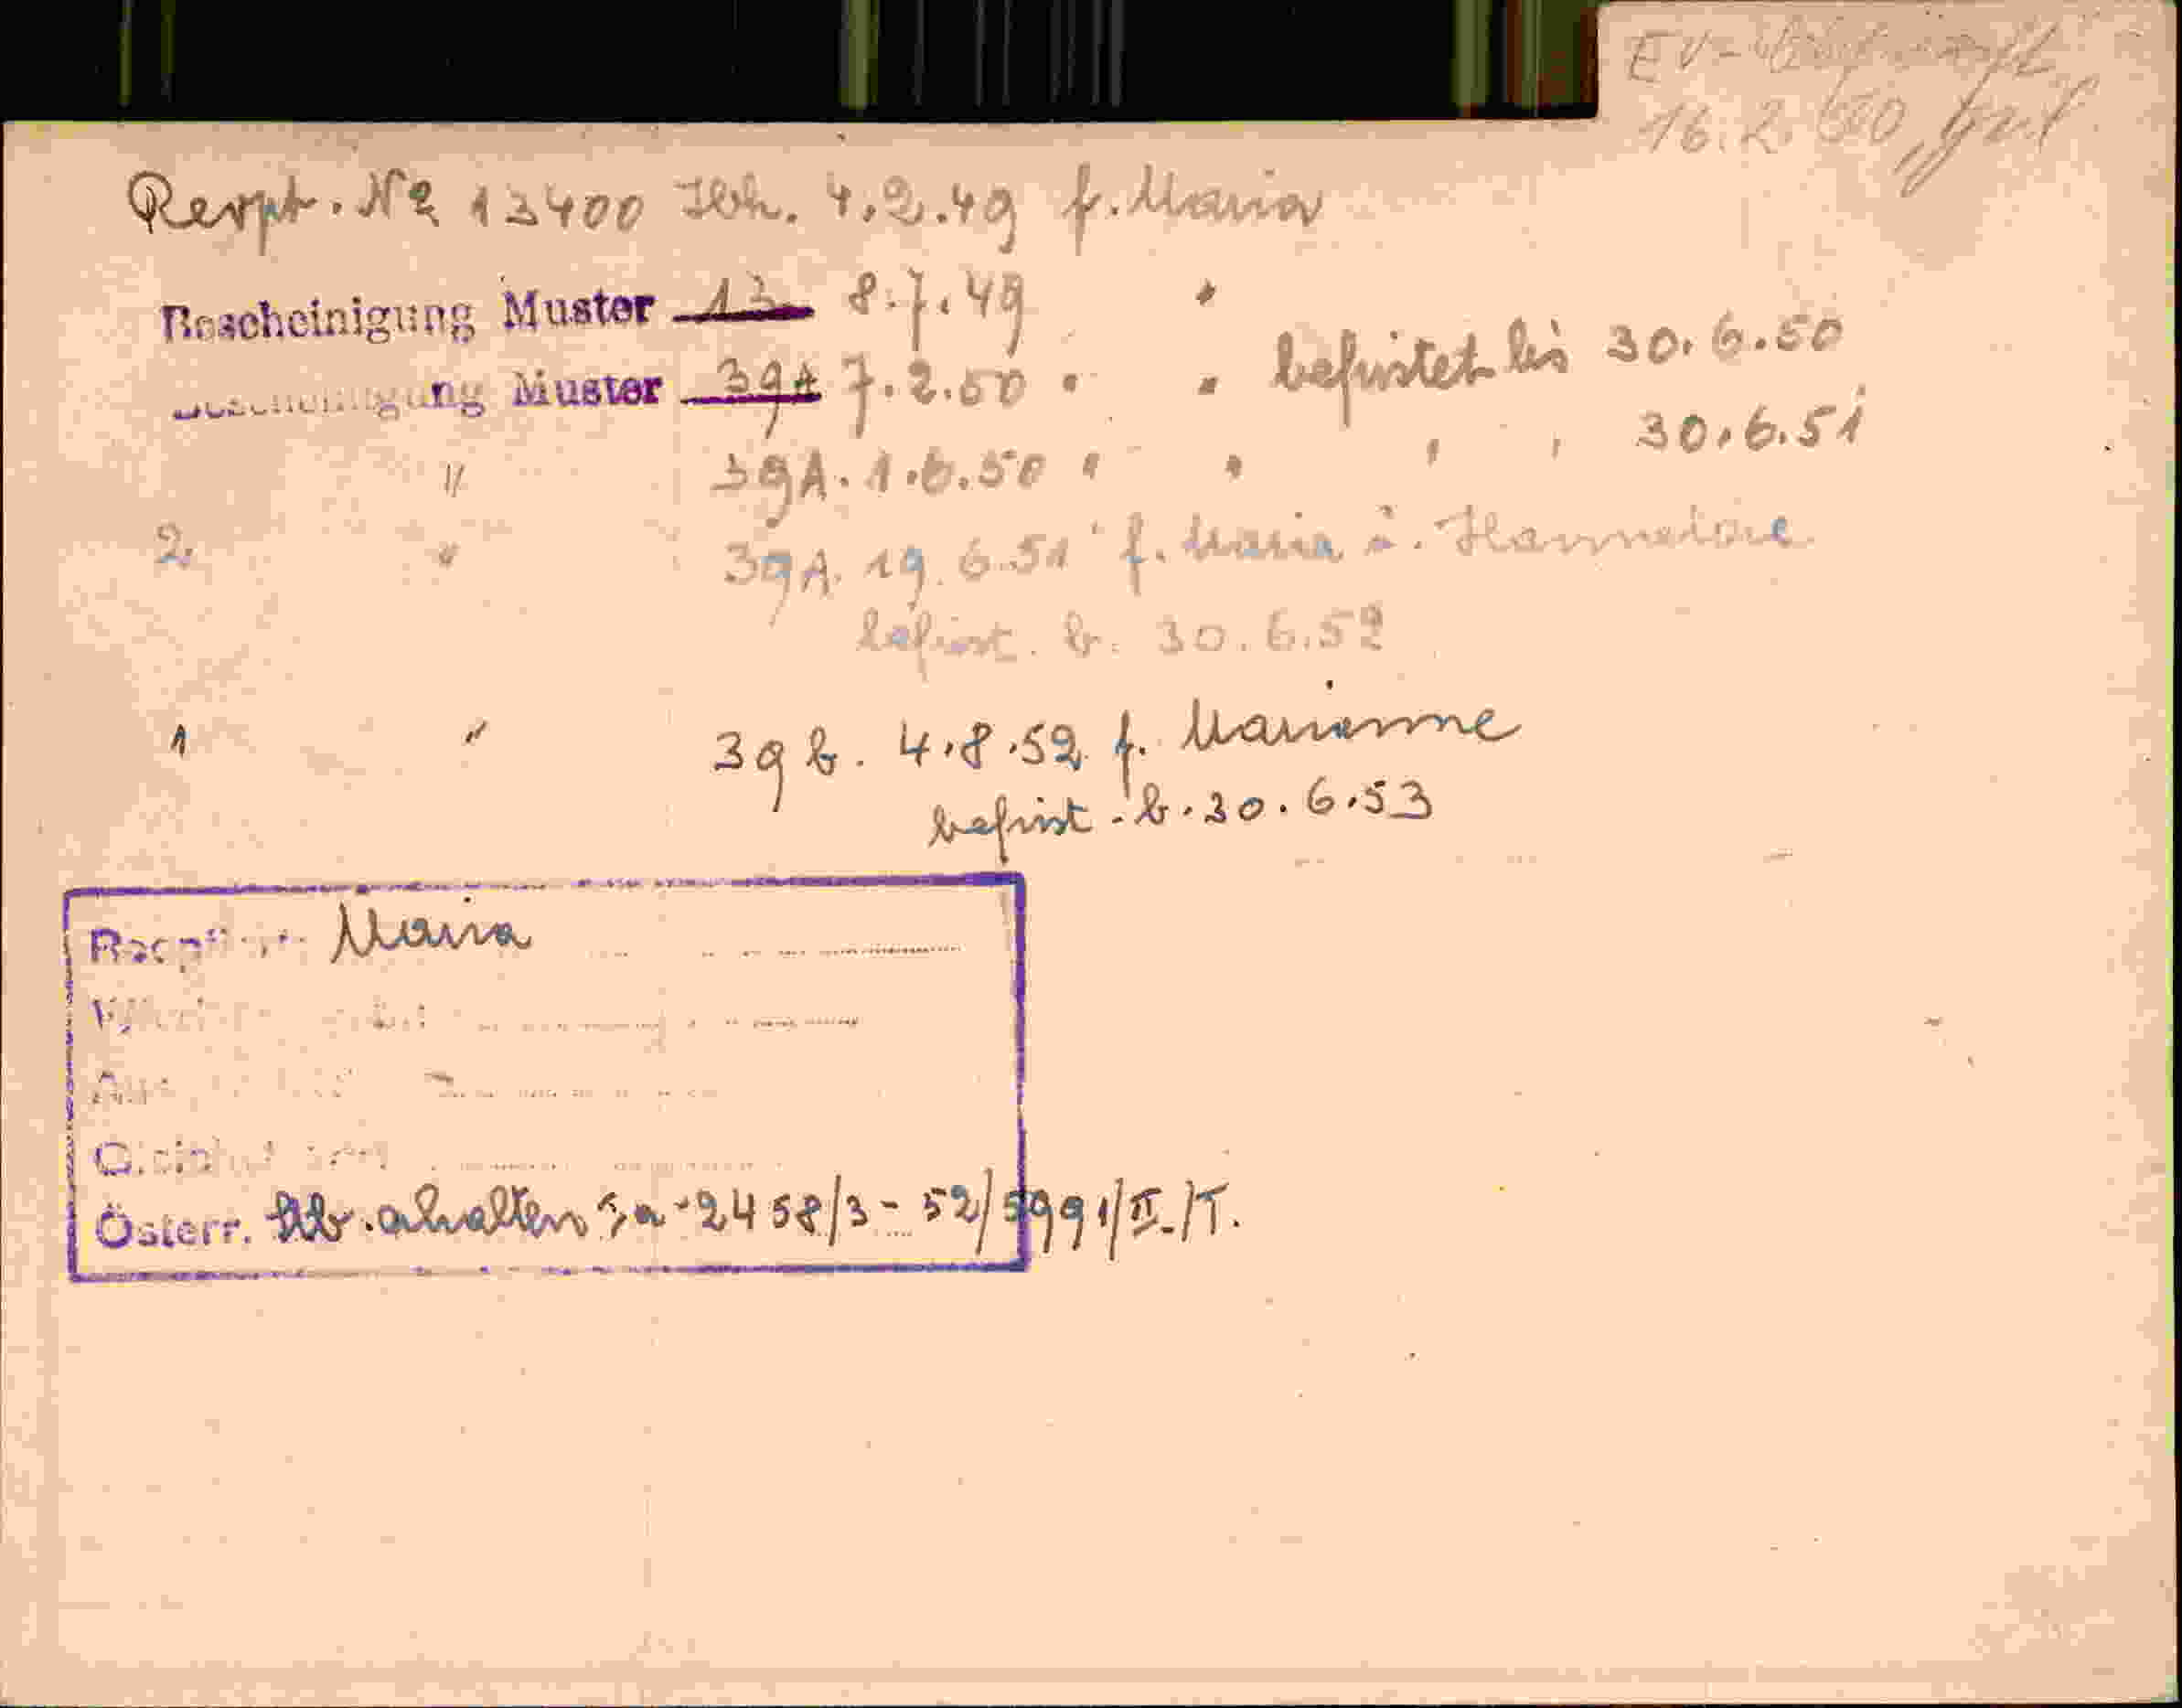 EV-
16.2.50
Rexpt. No 13400 Ibk. 4.2.49 f. Maria
Bescheinigung Muster 13 8.7.49 "
Bescheinigung Muster 39A 7.2.50 " " befristet bis 30.6.50
" 39A. 1.6.50 " " " " 30.6.51
2. " 39A. 19.6.51 f. Maria u. Hannelore
befrist. b. 30.6.52
1 " 39b. 4.8.52 f. Marianne
befrist. b. 30.6.53
Maria
Österr. Stb. erhalten Ia-2458/3-52/5991/II./T.